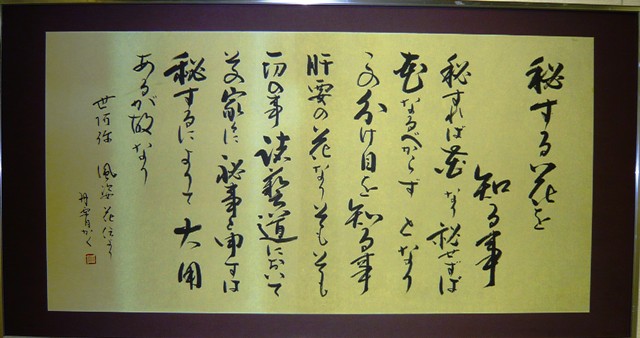 秘する花を
知る事
秘すれば花なり秘せずば
花なるべからずとなり
この分け目を知る事
肝要の花なりそもそも
一切の事諸藝道において
その家々に秘事と申すは
秘するによりて大用
あるが故なり
世阿弥 風姿花伝より
丹霄かく